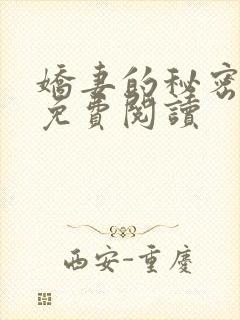 嬌妻的秘密
免費閱讀
西安-重慶